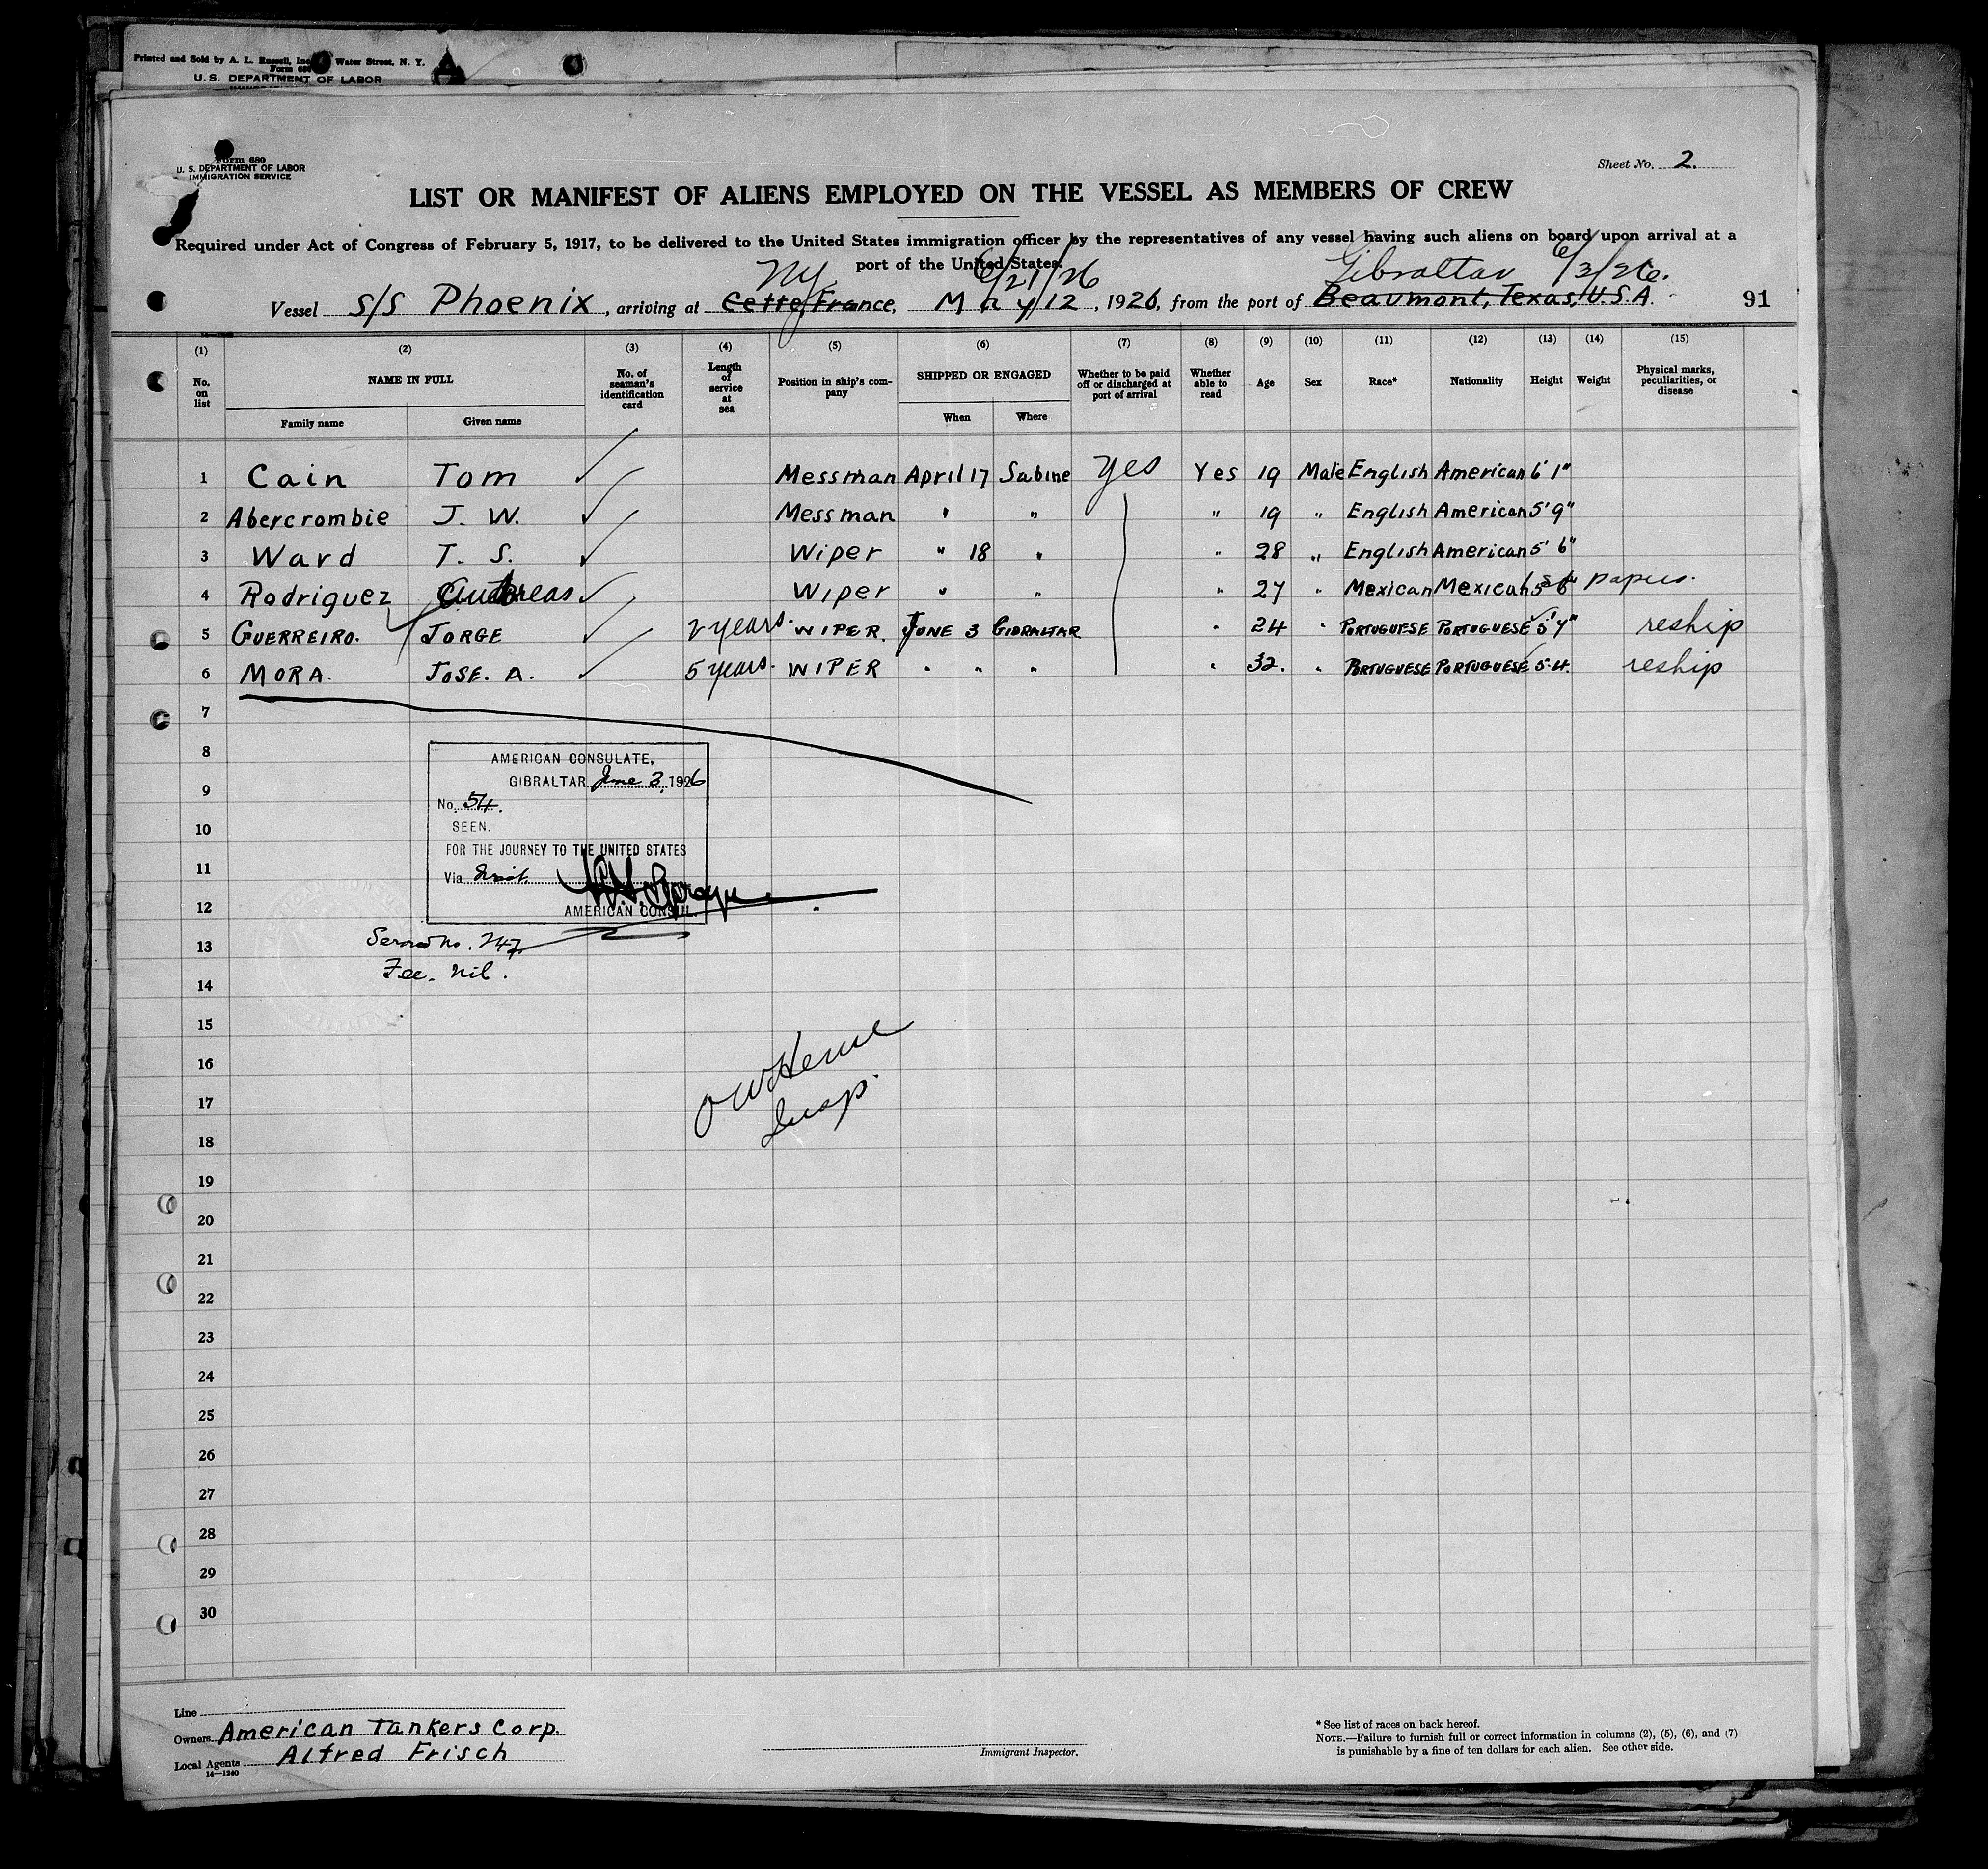 Printed and Sold by A. L. Russell, Inc Water Street, N. Y.
Form 680
U. S. DEPARTMENT OF LABOR
Form 680
U. S. DEPARTMENT OF LABOR
IMMIGRATION SERVICE
Sheet No. 2.
LIST OR MANIFEST OF ALIENS EMPLOYED ON THE VESSEL AS MEMBERS OF CREW
Required under Act of Congress of February 5, 1917, to be delivered to the United States immigration officer by the representatives of any vessel having such aliens on board upon arrival at a
port of the United States.
NY 6/21/26 Gibraltar 6/3/26.
Vessel S/S Phoenix, arriving at Cette, France, May 12, 1926, from the port of Beaumont, Texas, U.S.A. 91
(1) (2) (3) (4) (5) (6) (7) (8) (9) (10) (11) (12) (13) (14) (15)
No. on list NAME IN FULL No. of seaman's identification card Length of service at sea Position in ship's company SHIPPED OR ENGAGED Whether to be paid off or discharged at port of arrival Whether able to read Age Sex Race* Nationality Height Weight Physical marks, peculiarities, or disease
Family name Given name When Where
1 Cain Tom Messman April 17 Sabine Yes Yes 19 Male English American 6' 1"
2 Abercrombie J. W. Messman " " " 19 " English American 5' 9"
3 Ward T. S. Wiper " 18 " " 28 " English American 5' 6"
4 Rodriguez Wiper " " " 27 " Mexican Mexican 5' 6" papers.
5 GUERREIRO. JORGE 2 years. WIPER. JUNE 3 GIBRALTAR " 24 " PORTUGUESE PORTUGUESE 5' 7" reship
6 MORA. JOSE. A. 5 years. WIPER " " " " 32. " PORTUGUESE PORTUGUESE 5-4. reship
7
8
AMERICAN CONSULATE,
GIBRALTAR June 3, 1926
9
No. 54.
10
SEEN.
FOR THE JOURNEY TO THE UNITED STATES
11
Via
12
AMERICAN CONSUL.
13
No. 247
Fee. nil.
14
15
16
17
Insp.
18
19
20
21
22
23
24
25
26
27
28
29
30
Line
Owners American Tankers Corp.
Local Agents Alfred Frisch
14—1240
Immigrant Inspector.
* See list of races on back hereof.
NOTE.—Failure to furnish full or correct information in columns (2), (5), (6), and (7)
is punishable by a fine of ten dollars for each alien. See other side.